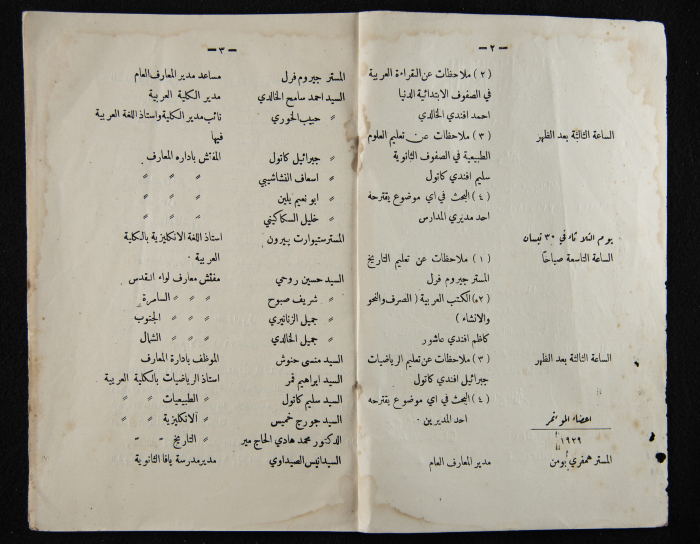 — ٢ —
(٢) ملاحظات عن القراءة العربية
في الصفوف الابتدائية الدنيا
احمد افندي الخالدي
الساعة الثالثة بعد الظهر (٣) ملاحظات عن تعليم العلوم
الطبيعية في الصفوف الثانوية
سليم افندي كاتول
(٤) البحث في اي موضوع يقترحه
احد مديري المدارس
يوم الثلاثاء في ٣٠ نيسان
الساعة التاسعة صباحاً (١) ملاحظات عن تعليم التاريخ
المستر جيروم فرل
(٢) الكتب العربية (الصرف والنحو
والانشاء)
كاظم افندي عاشور
الساعة الثالثة بعد الظهر (٣) ملاحظات عن تعليم الرياضيات
جبرائيل افندي كاتول
(٤) البحث في اي موضوع يقترحه
احد المديرين
اعضاء المؤتمر
١٩٢٩
المستر همفري بومن مدير المعارف العام
— ٣ —
المستر جيروم فرل مساعد مدير المعارف العام
السيد احمد سامح الخالدي مدير الكلية العربية
" حبيب الخوري نائب مدير الكلية واستاذ اللغة العربية
فيها
" جبرائيل كاتول المفتش بادارة المعارف
" اسعاف النشاشيبي " " "
" ابو نعيم يلين " " "
" خليل السكاكيني " " "
المستر ستيوارت بيرون استاذ اللغة الانكليزية بالكلية
العربية
السيد حسين روحي مفتش معارف لواء القدس
" شريف صبوح " " " السامرة
" جميل الزنانيري " " " الجنوب
" جميل الخالدي " " " الشمال
السيد منسى حنوش الموظف بادارة المعارف
السيد ابراهيم قمر استاذ الرياضيات بالكلية العربية
السيد سليم كاتول " الطبيعيات " "
السيد جورج خميس " الانكليزية " "
الدكتور محمد هادي الحاج مير " التاريخ " "
السيد انيس الصيداوي مدير مدرسة يافا الثانوية